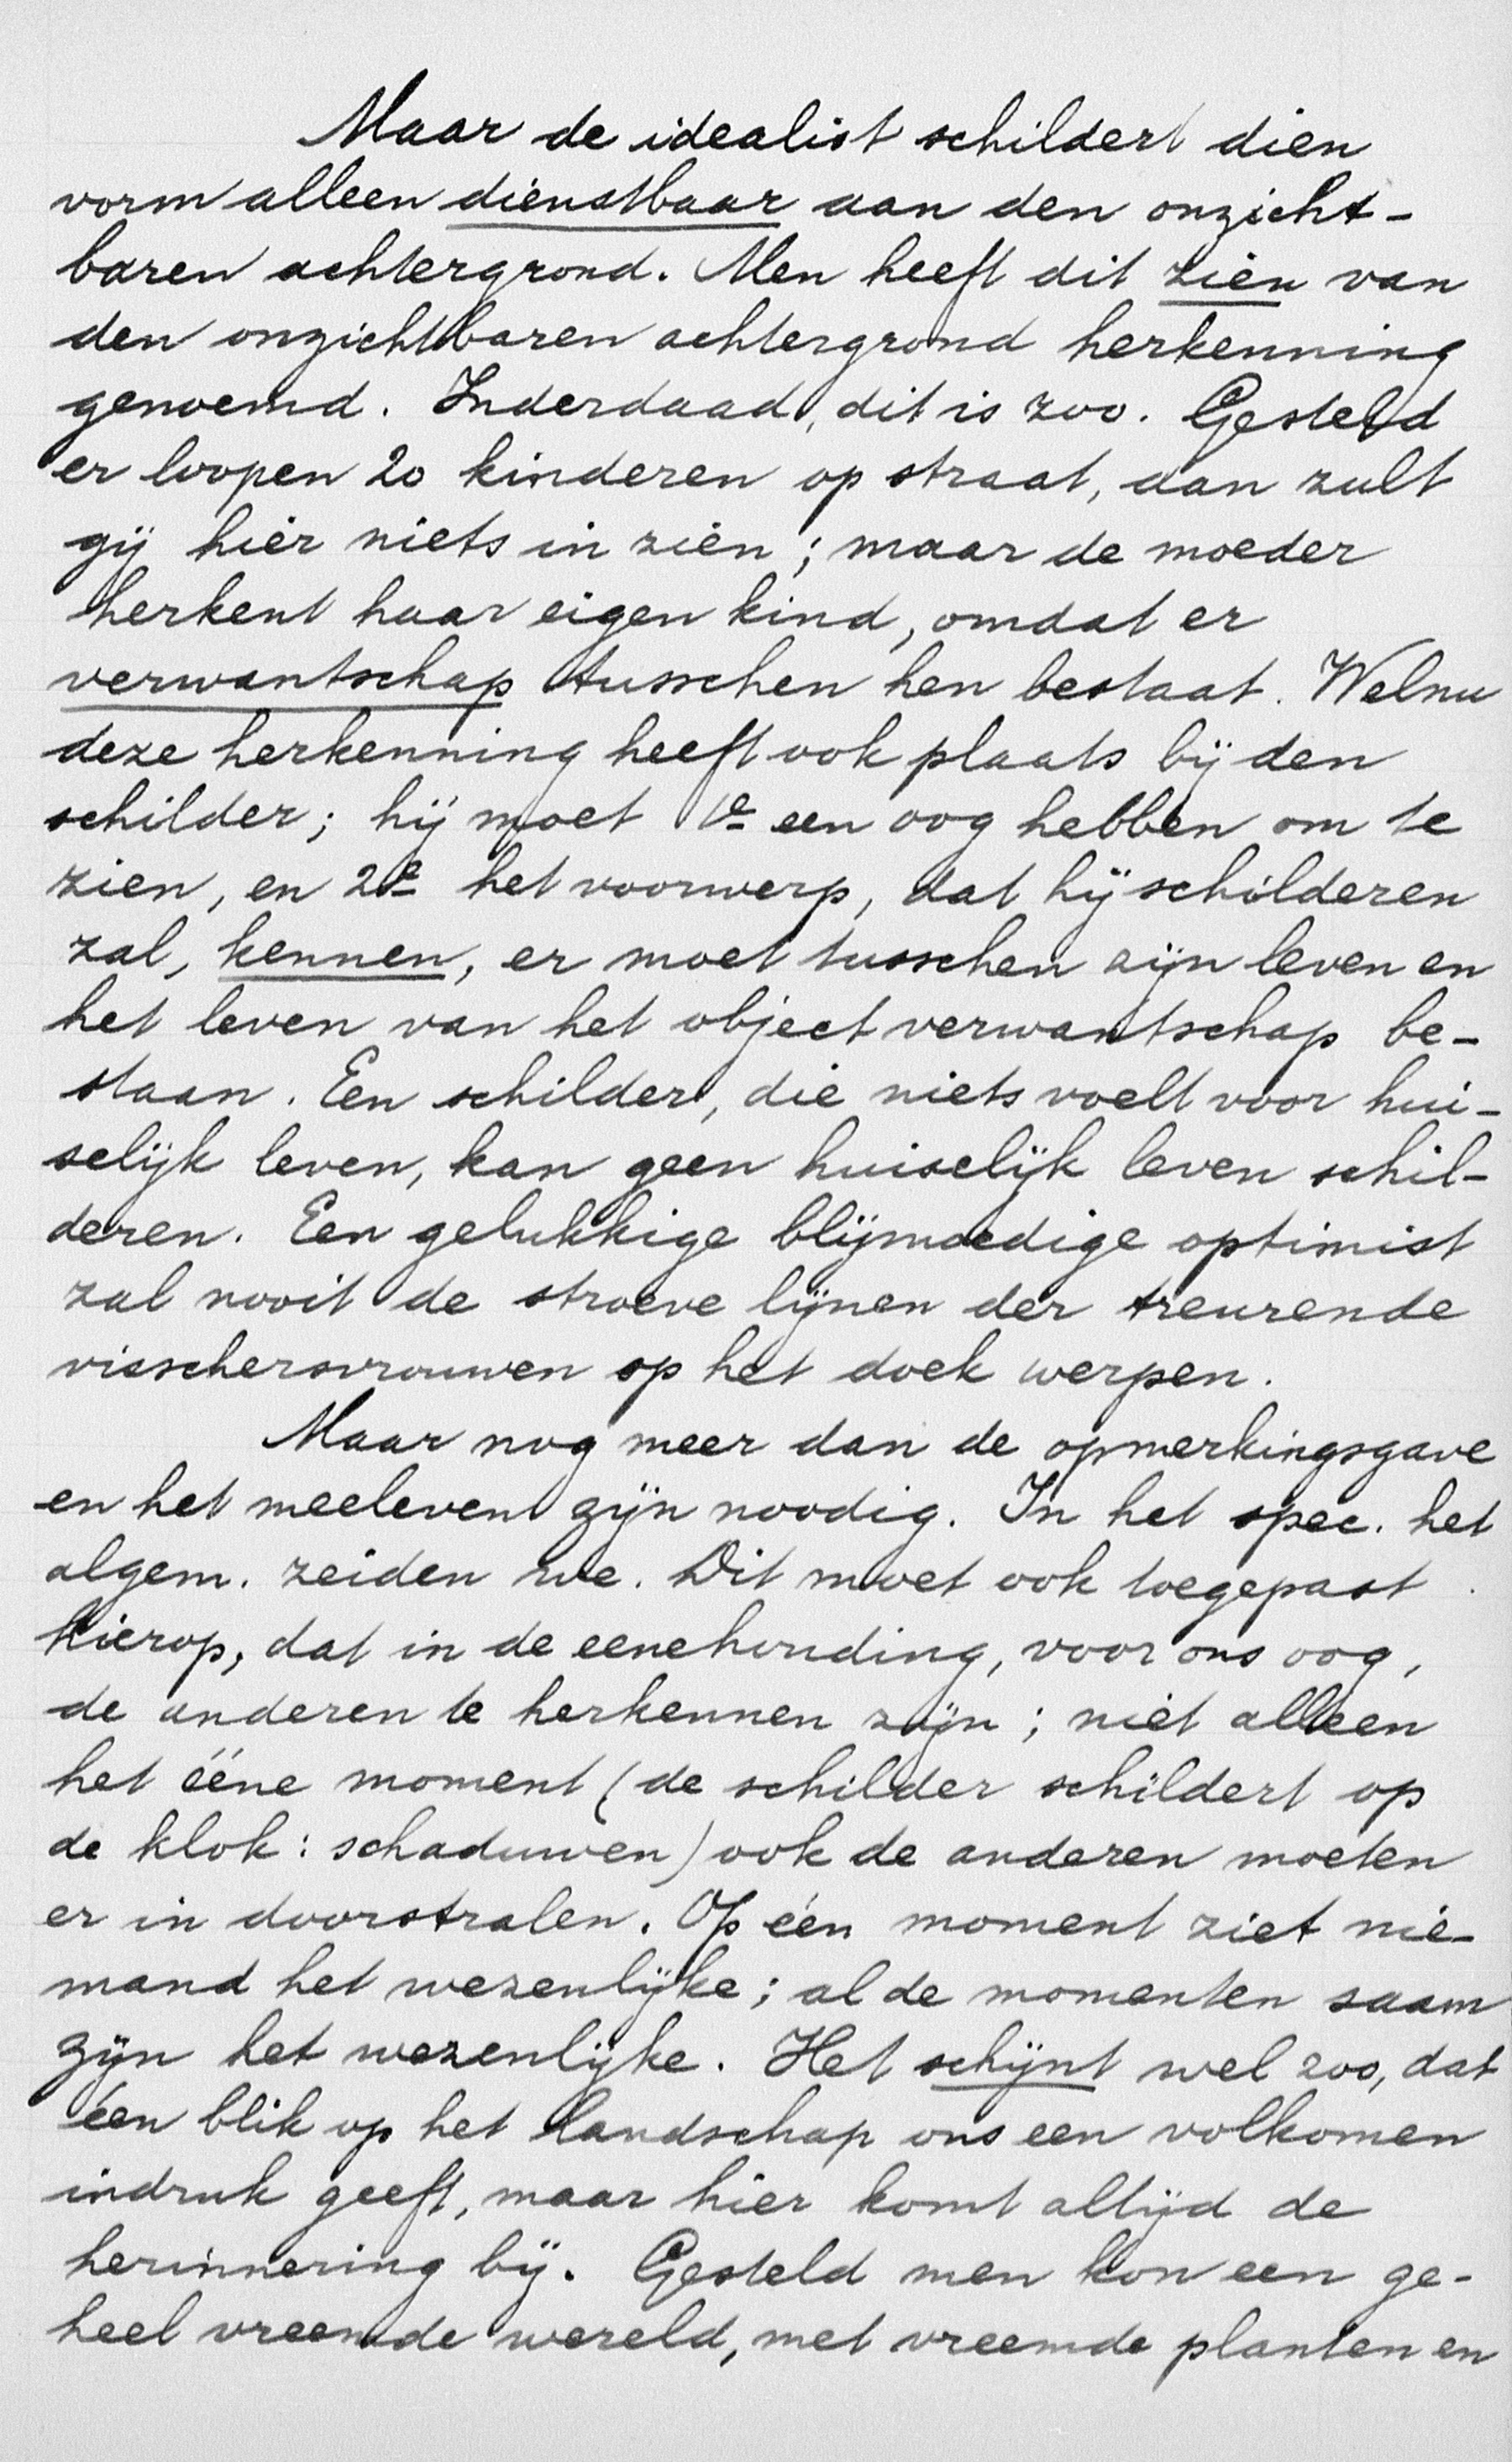 Maar de idealist schildert dien
vorm alleen dienstbaar aan den onzicht-
baren achtergrond. Men heeft dit zien van
den onzichtbaren achtergrond herkenning
genoemd. Inderdaad, dit is zoo. Gesteld
er loopen 20 kinderen op straat, dan zult
gij hier niets in zien; maar de moeder
herkent haar eigen kind, omdat er
verwantschap tusschen hen bestaat. Welnu
deze herkenning heeft ook plaats bij den
schilder; hij moet 1e een oog hebben om te
zien, en 2e het voorwerp, dat hij schilderen
zal, kennen, er moet tusschen zijn leven en
het leven van het object verwantschap be-
staan. Een schilder, die niets voelt voor hui-
selijk leven, kan geen huiselijk leven schil-
deren. Een gelukkige blijmoedige optimist
zal nooit de stroeve lijnen der treurende
visschersvrouwen op het doek werpen.
Maar nog meer dan de opmerkingsgave
en het meeleven zijn noodig. In het spec. het
algem. zeiden we. Dit moet ook toegepast
hierop, dat in de eene houding, voor ons oog,
de anderen te herkennen zijn; niet alleen
het ééne moment (de schilder schildert op
de klok: schaduwen) ook de anderen moeten
er in doorstralen. Op één moment ziet nie-
mand het wezenlijke; al de momenten saam
zijn het wezenlijke. Het schijnt wel zoo, dat
één blik op het landschap ons een volkomen
indruk geeft, maar hier komt altijd de
herinnering bij. Gesteld men kon een ge-
heel vreemde wereld, met vreemde planten en